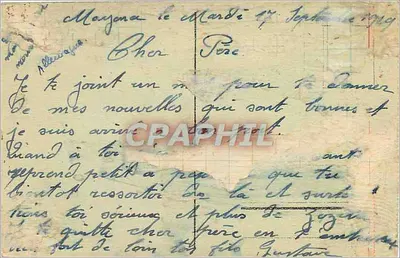 Mayence le Mardi 17 Septembre 1919
Allemagne
Cher Père.
Je te joint un m pour te donner
de mes nouvelles qui sont bonnes et
je suis arrivé a bon port.
CPARPHIL
Quand à toi santé
reprend petit a peu que tu
bientot ressortir de là et surtout
tiens toi sérieux et plus de
Je te quitte cher père en t'embrassant
fort de loin ton fils Gustave